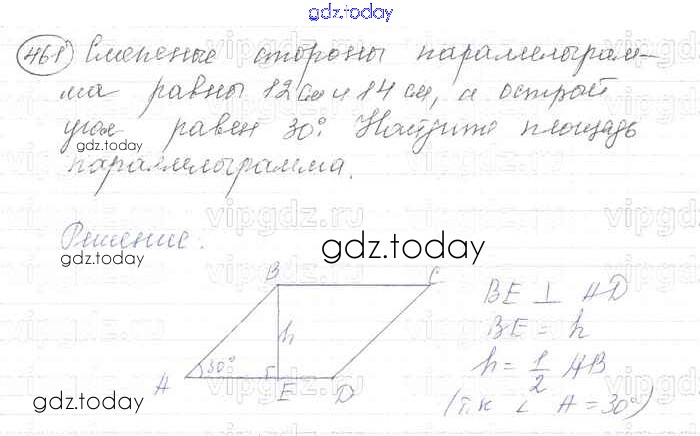 gdz.today
461 Смежные стороны параллелограм-
ма равны 12см и 14 см, а острый
угол равен 30°. Найдите площадь
gdz.today
параллелограмма.
vipgdz.ru
Решение.
gdz.today
gdz.today
B C
BE ⊥ AD
BE = h
h
h = 1/2 AB
30°
A E D
(т.к ∠ A = 30°)
gdz.today